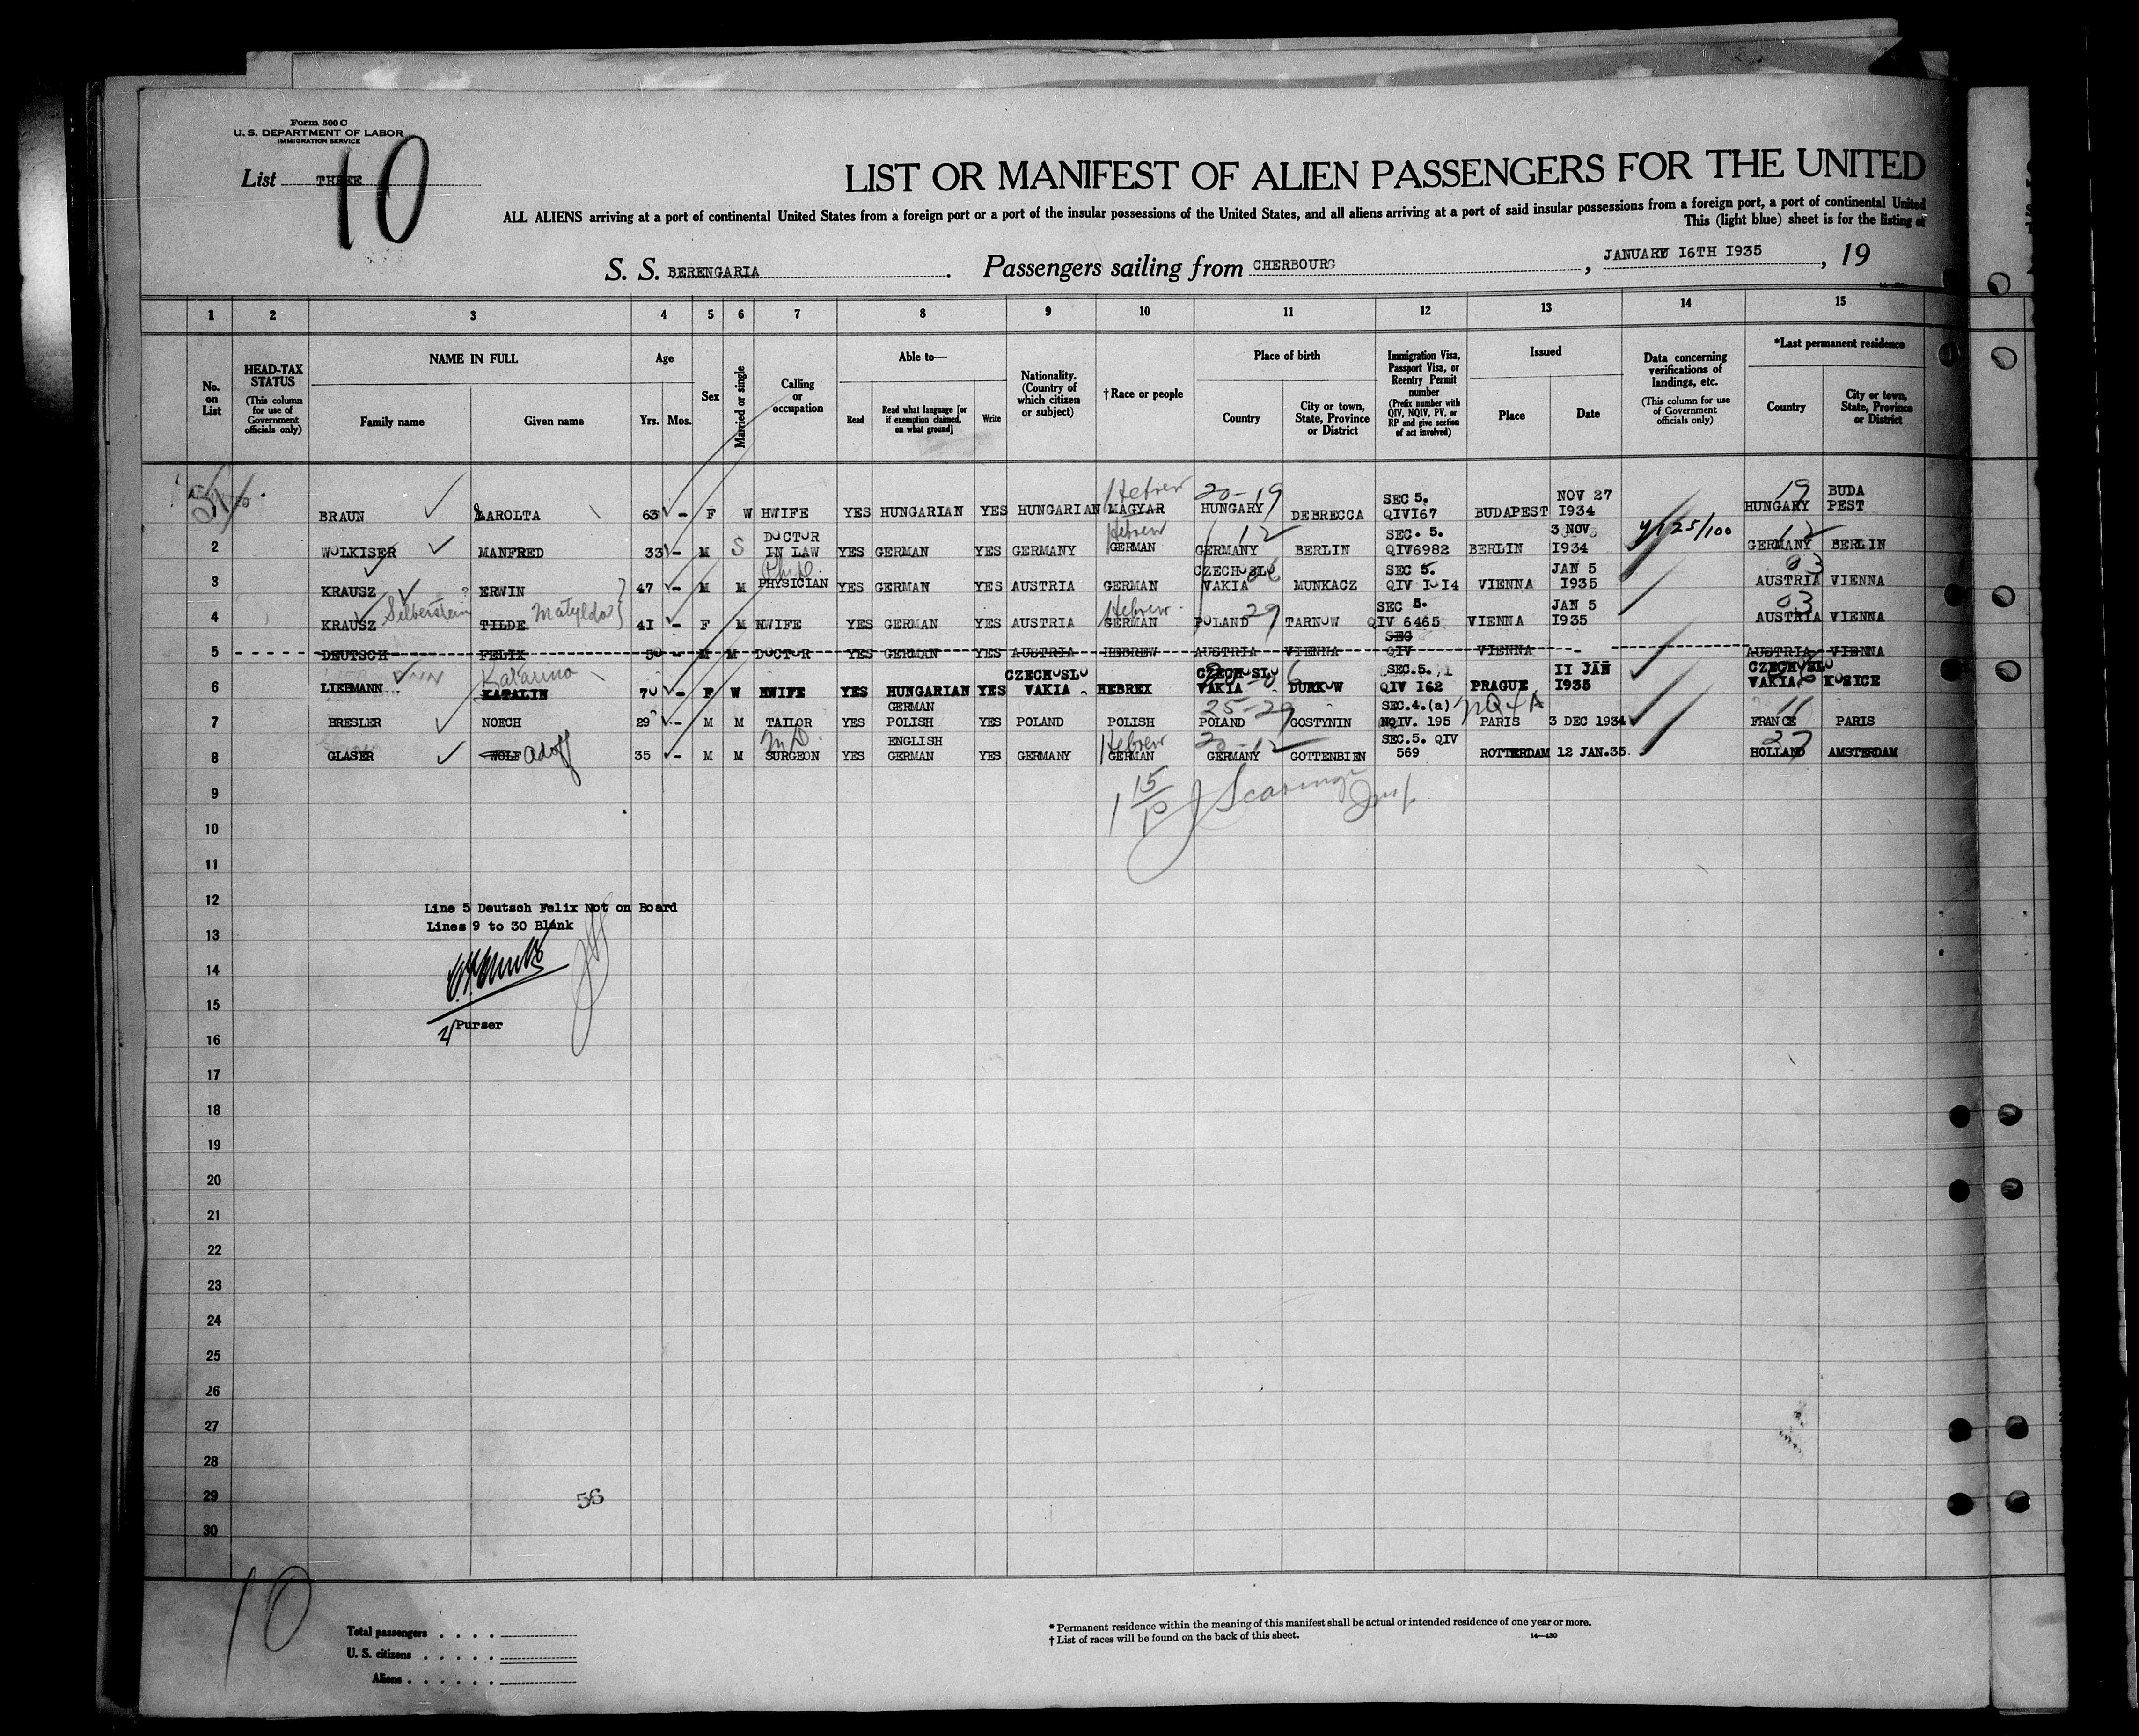 Form 500 C
U. S. DEPARTMENT OF LABOR
IMMIGRATION SERVICE
List THREE
10
LIST OR MANIFEST OF ALIEN PASSENGERS FOR THE UNITED
ALL ALIENS arriving at a port of continental United States from a foreign port or a port of the insular possessions of the United States, and all aliens arriving at a port of said insular possessions from a foreign port, a port of continental United
This (light blue) sheet is for the listing of
S. S. BERENGARIA. Passengers sailing from CHERBOURG, JANUARY 16TH 1935, 19
1 2 3 4 5 6 7 8 9 10 11 12 13 14 15
No. on List
HEAD-TAX STATUS (This column for use of Government officials only)
NAME IN FULL
Family name
Given name
Age
Yrs.
Mos.
Sex
Married or single
Calling or occupation
Able to—
Read
Read what language [or if exemption claimed, on what ground]
Write
Nationality. (Country of which citizen or subject)
†Race or people
Place of birth
Country
City or town, State, Province or District
Immigration Visa, Passport Visa, or Reentry Permit number (Prefix number with QIV, NQIV, PV, or RP and give section of act involved)
Issued
Place
Date
Data concerning verifications of landings, etc. (This column for use of Government officials only)
*Last permanent residence
Country
City or town, State, Province or District
BRAUN KAROLTA 63 - F W HWIFE YES HUNGARIAN YES HUNGARIAN Hebrew MAGYAR 20-19 HUNGARY DEBRECCA SEC 5. QIVI67 BUDAPEST NOV 27 I934 19 HUNGARY BUDA PEST
2 WOLKISER MANFRED 33 - M S DOCTOR IN LAW YES GERMAN YES GERMANY Hebrew GERMAN 12 GERMANY BERLIN SEC. 5. QIV6982 BERLIN 3 NOV I934 25/100 12 GERMANY BERLIN
3 KRAUSZ ERWIN 47 - M M Ph.D. PHYSICIAN YES GERMAN YES AUSTRIA GERMAN CZECHOSLO VAKIA 06 MUNKACZ SEC 5. QIV IOI4 VIENNA JAN 5 I935 03 AUSTRIA VIENNA
4 KRAUSZ Silberstein TILDE Matylda 4I - F M HWIFE YES GERMAN YES AUSTRIA Hebrew GERMAN POLAND 29 TARNOW SEC 5. QIV 6465 VIENNA JAN 5 I935 03 AUSTRIA VIENNA
5 DEUTSCH FELIX 50 - M M DOCTOR YES GERMAN YES AUSTRIA HEBREW AUSTRIA VIENNA SEC QIV VIENNA - AUSTRIA VIENNA
6 LIEBMANN Katarina KATALIN 70 - F W HWIFE YES HUNGARIAN YES CZECHOSLO VAKIA HEBREX CZECHOSLO VAKIA DURKOW SEC.5. QIV I62 PRAGUE II JAN I935 CZECHOSLO VAKIA KOSICE
7 BRESLER NOECH 29 - M M TAILOR YES GERMAN POLISH YES POLAND POLISH 25-29 POLAND GOSTYNIN SEC.4.(a) NQIV. 195 PARIS 3 DEC 1934 11 FRANCE PARIS
8 GLASER WOLF Adolf 35 - M M M.D. SURGEON YES ENGLISH GERMAN YES GERMANY Hebrew GERMAN 20-12 GERMANY GOTTENBIEN SEC.5. QIV 569 ROTTERDAM 12 JAN.35. 27 HOLLAND AMSTERDAM
9
10
11
12
Line 5 Deutsch Felix Not on Board
Lines 9 to 30 Blank
13
14
15
Purser
16
17
18
19
20
21
22
23
24
25
26
27
28
29
56
30
10
Total passengers
U. S. citizens
Aliens
* Permanent residence within the meaning of this manifest shall be actual or intended residence of one year or more.
† List of races will be found on the back of this sheet.
14—430